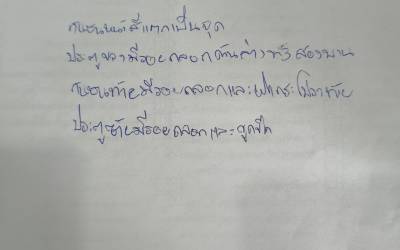 กันชนหน้าสีแตกเป็นจุด
ประตูขวามีรอยถลอกด้านล่างทั้งสองบาน
กันชนท้ายมีรอยถลอกและฝากระโปรงท้าย
ประตูซ้ายมีรอยถลอกและขูดขีด